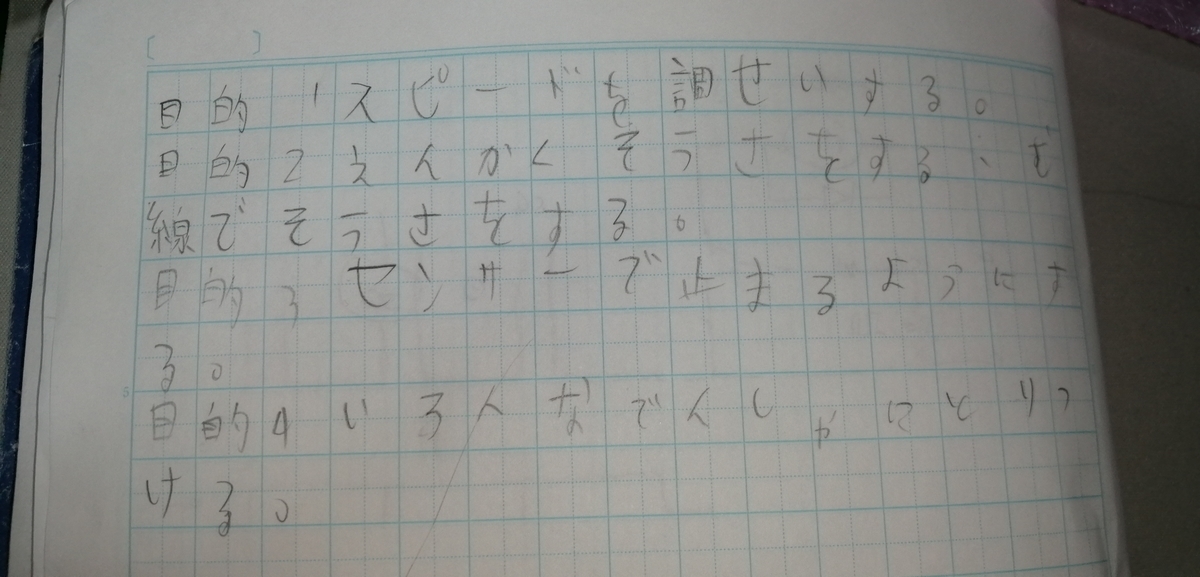 目的1スピードを調せいする。
目的2えんかくそうさをする、む
線でそうさをする。
目的3センサーで止まるようにす
る。
目的4いろんなでんしゃにとりつ
ける。